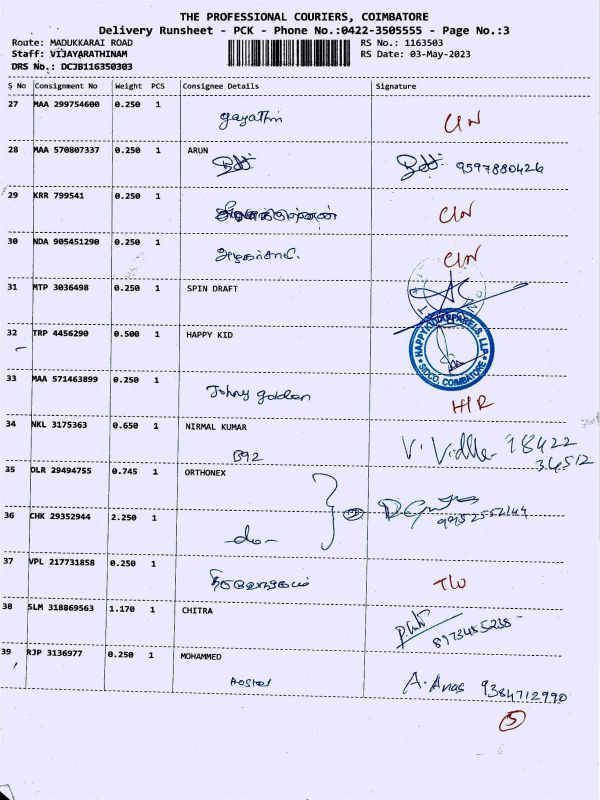 THE PROFESSIONAL COURIERS, COIMBATORE
Delivery Runsheet - PCK - Phone No.:0422-3505555 - Page No.:3
Route: MADUKKARAI ROAD RS No.: 1163503
Staff: VIJAYARATHINAM RS Date: 03-May-2023
DRS No.: DCJB116350303
S No Consignment No Weight PCS Consignee Details Signature
27 MAA 299754600 0.250 1 gayathri
28 MAA 570807337 0.250 1 ARUN
9597880426
29 KRR 799541 0.250 1
30 NDA 905451290 0.250 1
31 MTP 3036498 0.250 1 SPIN DRAFT
32 TRP 4456290 0.500 1 HAPPY KID
HAPPYKID APPARELS, LLP
SIDCO, COIMBATORE
33 MAA 571463899 0.250 1
Johny golden
34 NKL 3175363 0.650 1 NIRMAL KUMAR
B92 V. Vidhe 98422
36512
35 DLR 29494755 0.745 1 ORTHONEX
36 CHK 29352944 2.250 1
-do-
37 VPL 217731858 0.250 1
38 SLM 318869563 1.170 1 CHITRA
8973455238
39 RJP 3136977 0.250 1 MOHAMMED
Hostel A. Anas 9384712990
5